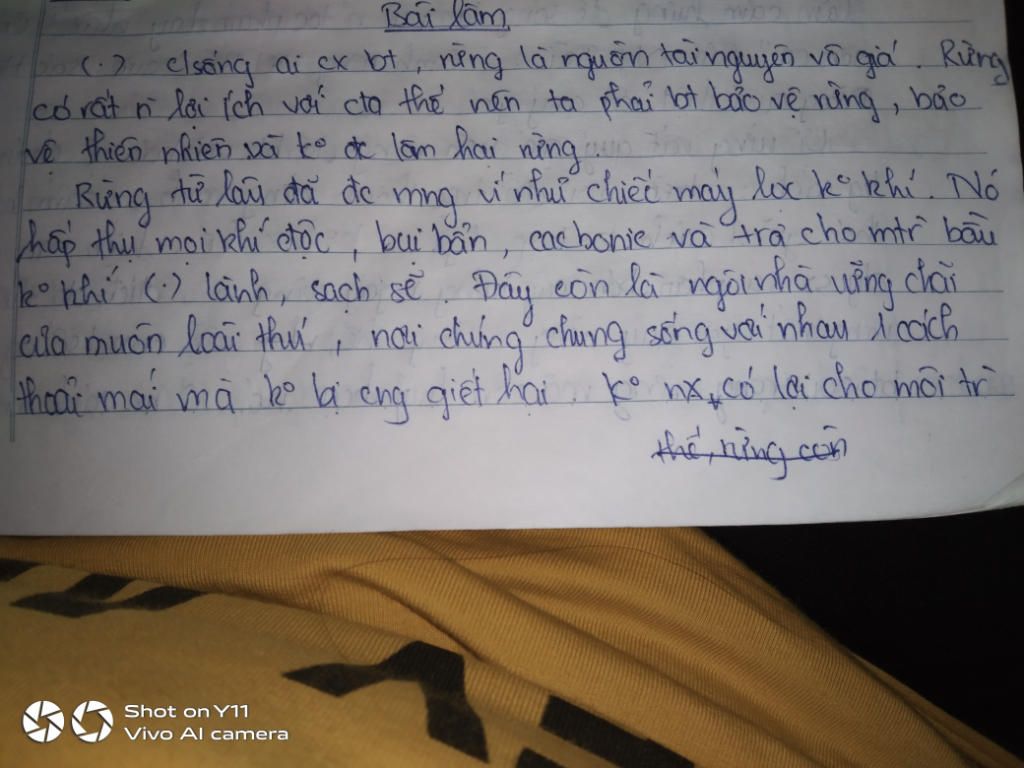 Bài làm
(.) c/sống ai cx bt, rừng là nguồn tài nguyên vô giá. Rừng
có rất n lợi ích với cta thế nên ta phải bt bảo vệ rừng, bảo
vệ thiên nhiên và k° đc làm hại rừng.
Rừng từ lâu đã đc mng ví như chiếc máy lọc k° khí. Nó
hấp thụ mọi khí độc, bụi bẩn, cacbonic và trả cho mtr` bầu
k° khí (.) lành, sạch sẽ. Đây còn là ngôi nhà vững chãi
của muôn loài thú, nơi chúng chung sống với nhau 1 cách
thoải mái mà k° bị cng giết hại. K° nx, có lợi cho môi tr`
thế, rừng còn
Shot on Y11
Vivo AI camera